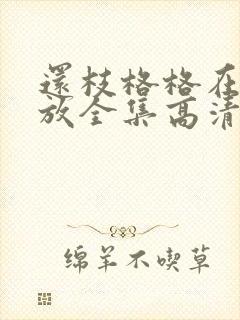 還枝格格在
放全集高清
绵羊不喫草